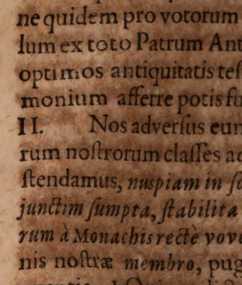 ne quidem pro votorum
lum ex toto Patrum Ant
optimos antiquitatis teſ
monium afferre potis fu
II. Nos adverſus eun
rum noſtrorum claſſes ac
ſtendamus, nuspiam in ſc
junctim ſumpta, ſtabilita
rum à Monachis rectè vove
nis noſtræ membro, pug